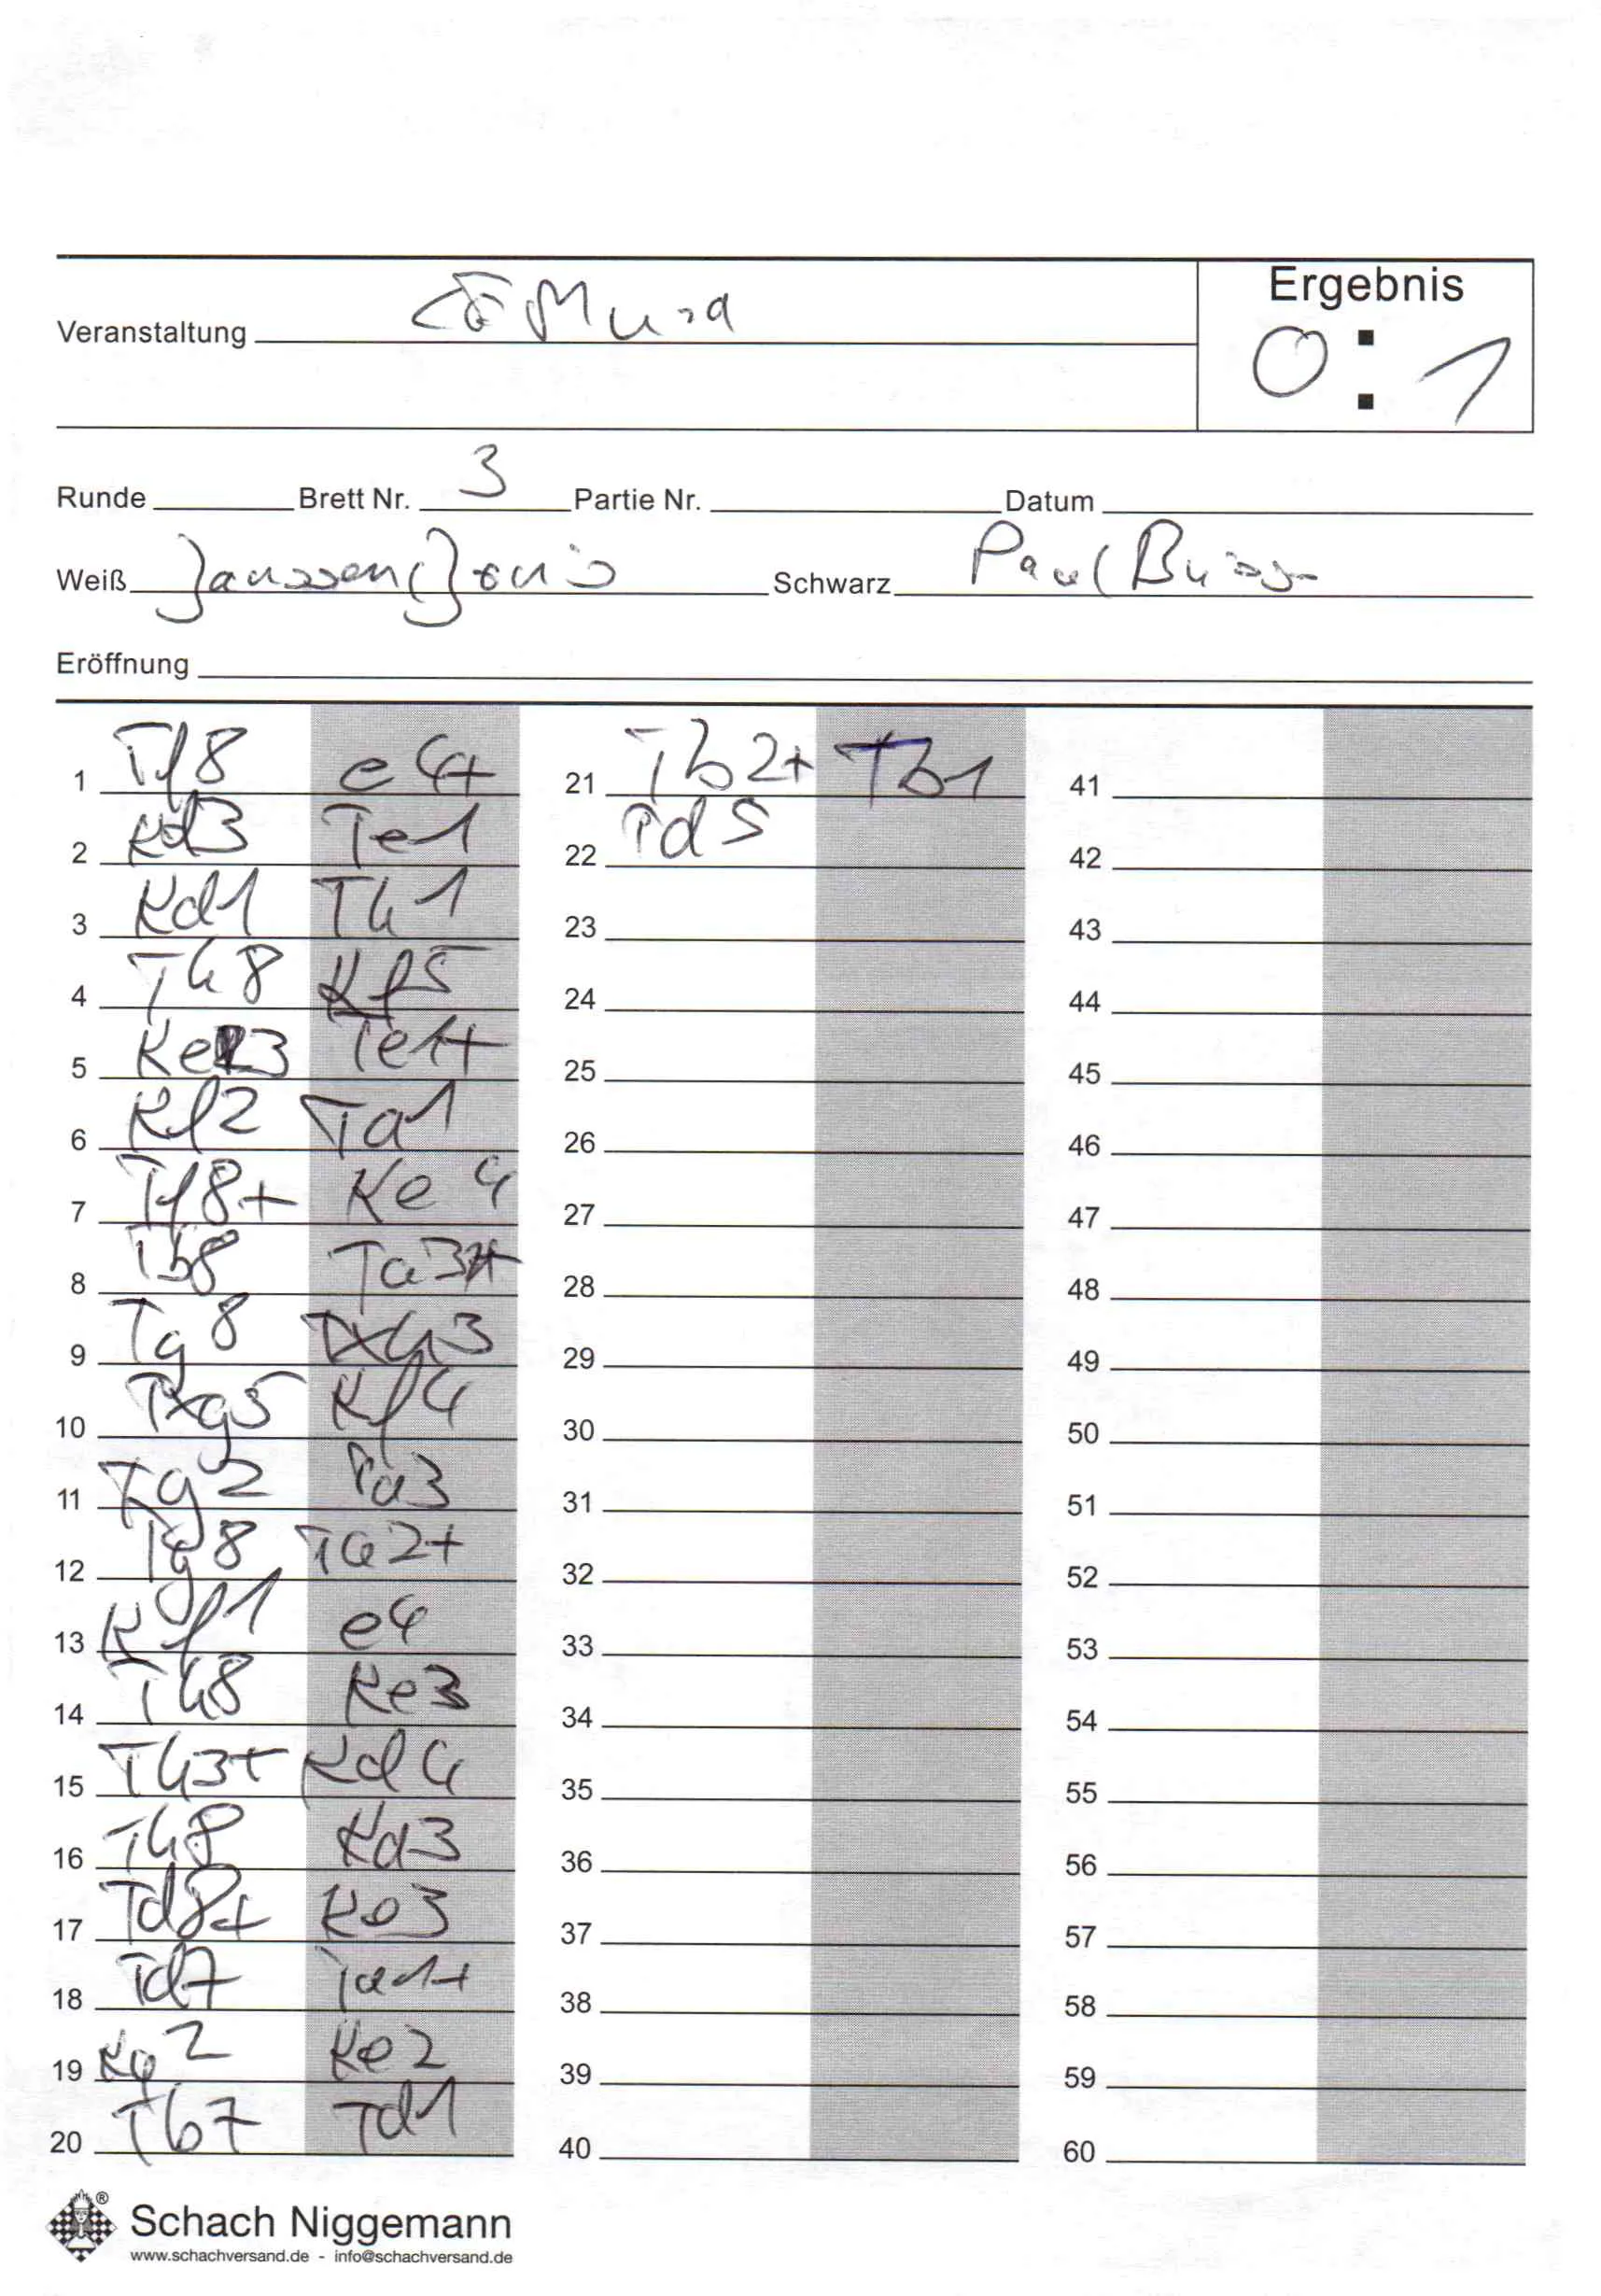 Ergebnis
Veranstaltung
0 : 1
Runde Brett Nr. 3 Partie Nr. Datum
Weiß Janssen Jonis Schwarz Paul
Eröffnung
1 Tf8 e4+
2 Kd3 Te1
3 Kd1 Th1
4 Th8 Kf5
5 Ke3 Te1+
6 Kf2 Ta1
7 Tf8+ Ke4
8 Tb8 Ta3+
9 Tg8 Txh3
10 Txg5 Kf4
11 Kg2 Ta3
12 Tg8 Ta2+
13 Kf1 e4
14 Th8 Ke3
15 Th3+ Kd4
16 Th8 Kd3
17 Td8+ Ke3
18 Td7 Ta1+
19 Kg2 Ke2
20 Tb7 Td1
21 Tb2+ Tb1
22 Td5
23
24
25
26
27
28
29
30
31
32
33
34
35
36
37
38
39
40
41
42
43
44
45
46
47
48
49
50
51
52
53
54
55
56
57
58
59
60
Schach Niggemann
www.schachversand.de - info@schachversand.de